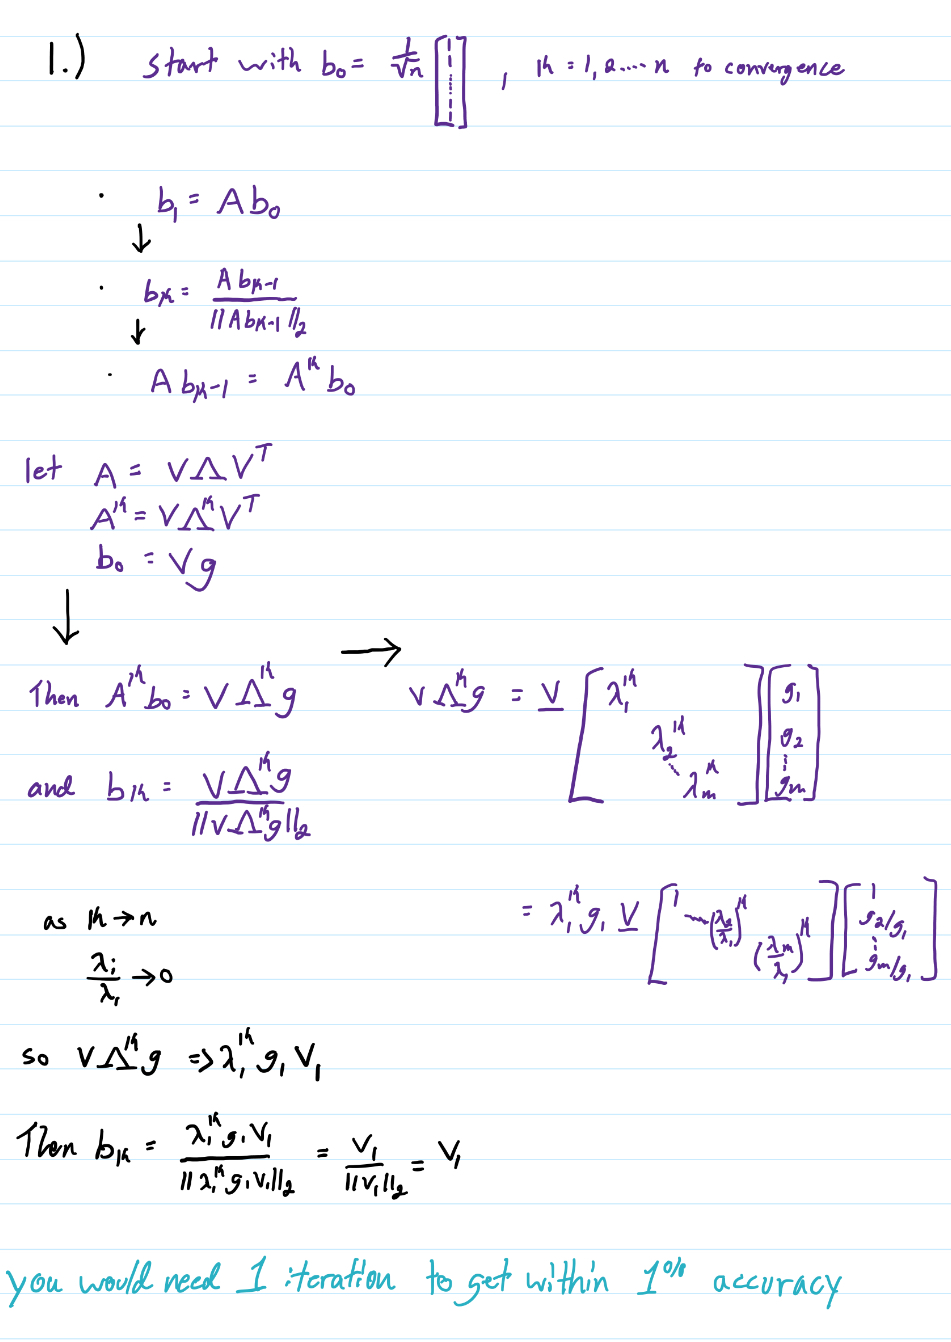 1.) start with b₀ = 1/√n [1 1 ⋮ 1], k = 1, 2.... n to convergence
· b₁ = A b₀
↓
· bₖ = A bₖ₋₁ / ||A bₖ₋₁||₂
↓
· A bₖ₋₁ = Aᵏ b₀
let A = VΛVᵀ
Aᵏ = VΛᵏVᵀ
b₀ = Vg
↓
Then Aᵏb₀ = VΛᵏg → VΛᵏg = V [λ₁ᵏ λ₂ᵏ ⋱ λₘᵏ] [g₁ g₂ ⋮ gₘ]
and bₖ = VΛᵏg / ||VΛᵏg||₂
= λ₁ᵏ g₁ V [1 (λ₂/λ₁)ᵏ (λₘ/λ₁)ᵏ] [1 g₂/g₁ ⋮ gₘ/g₁]
as k → n
λᵢ/λ₁ → 0
so VΛᵏg => λ₁ᵏ g₁ V₁
Then bₖ = λ₁ᵏ g₁ V₁ / ||λ₁ᵏ g₁ V₁||₂ = V₁ / ||V₁||₂ = V₁
you would need 1 iteration to get within 1% accuracy